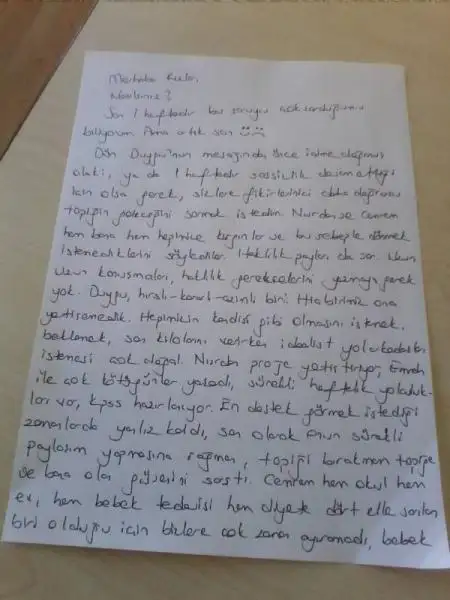 Merhaba kızlar,
Nasılsınız?
Son 1 haftadır bu soruyu çok sorduğumu
biliyorum. Ama artık son
Dün Duygu'nun mesajında ince
olaki, ya da 1 haftadır sessizlik devam ettiği
için olsa gerek, sizlere fikirlerinizi daha doğrusu
topiğin geleceğini sormak istedim. Nurdan ve Cenrem
hem bana hem hepinize kırgınlar ve bu sebeple dönmek
istemediklerini söylediler. Haklılık payları da var. Uzun
uzun konuşmaları, haklılık gerekçelerini yazmaya gerek
yok. Duygu, hırslı-kararlı-azimli biri. Hiçbirimiz ona
yetişemedik. Hepimizin kendisi gibi olmasını istemek,
beklemek, son kilolarını verirken idealist yol arkadaşları
istemesi çok doğal. Nurdan proje yetiştiriyor, Emrah
ile çok kötü günler yaşadı, sürekli haftalık yolculuk-
ları var, kpss hazırlanıyor. En destek görmek istediği
zamanlarda yalnız kaldı, son olarak onun sürekli
paylaşım yapmasına rağmen, topiği bırakmam topiğe
ve bana olan güvenini sarstı. Cenrem hem okul hem
ev, hem bebek tedavisi hem diyete dört elle sarılan
biri olduğu için bizlere çok zaman ayıramadı, bebek